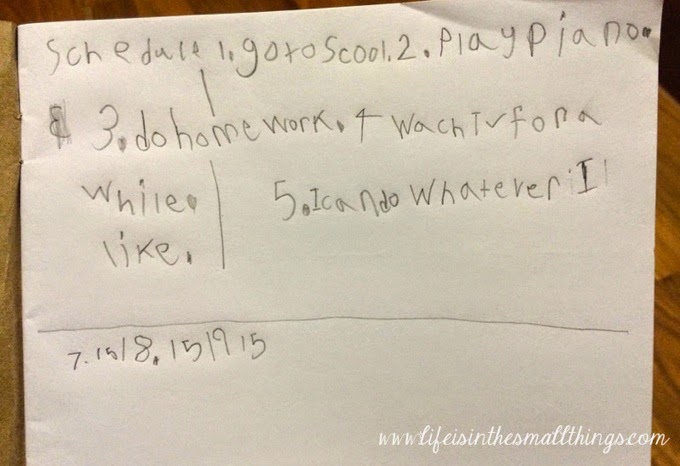 Schedule 1. go to Scool. 2. Play piano.
3. do home work. 4 wach Tv for a
while. 5. I can do whatever I
like.
7.15/8.15/9 15
www.lifeisinthesmallthings.com